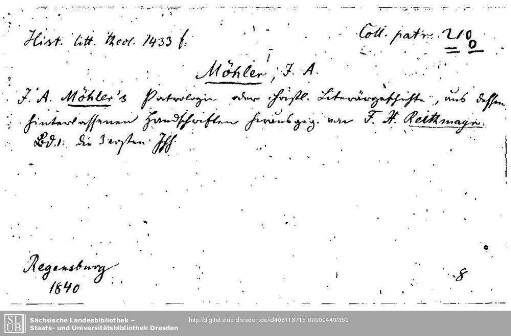 Hist. litt. theol. 1433 f.
Coll. patr. 210
Möhler, J. A.
J. A. Möhler's Patrologie oder christl. Literärgeschichte, aus dessen
hinterlassenen Handschriften herausgeg. von F. X. Reithmayr.
Bd. 1. die 3 ersten Jhh.
Regensburg
1840
8
Sächsische Landesbibliothek –
Staats- und Universitätsbibliothek Dresden